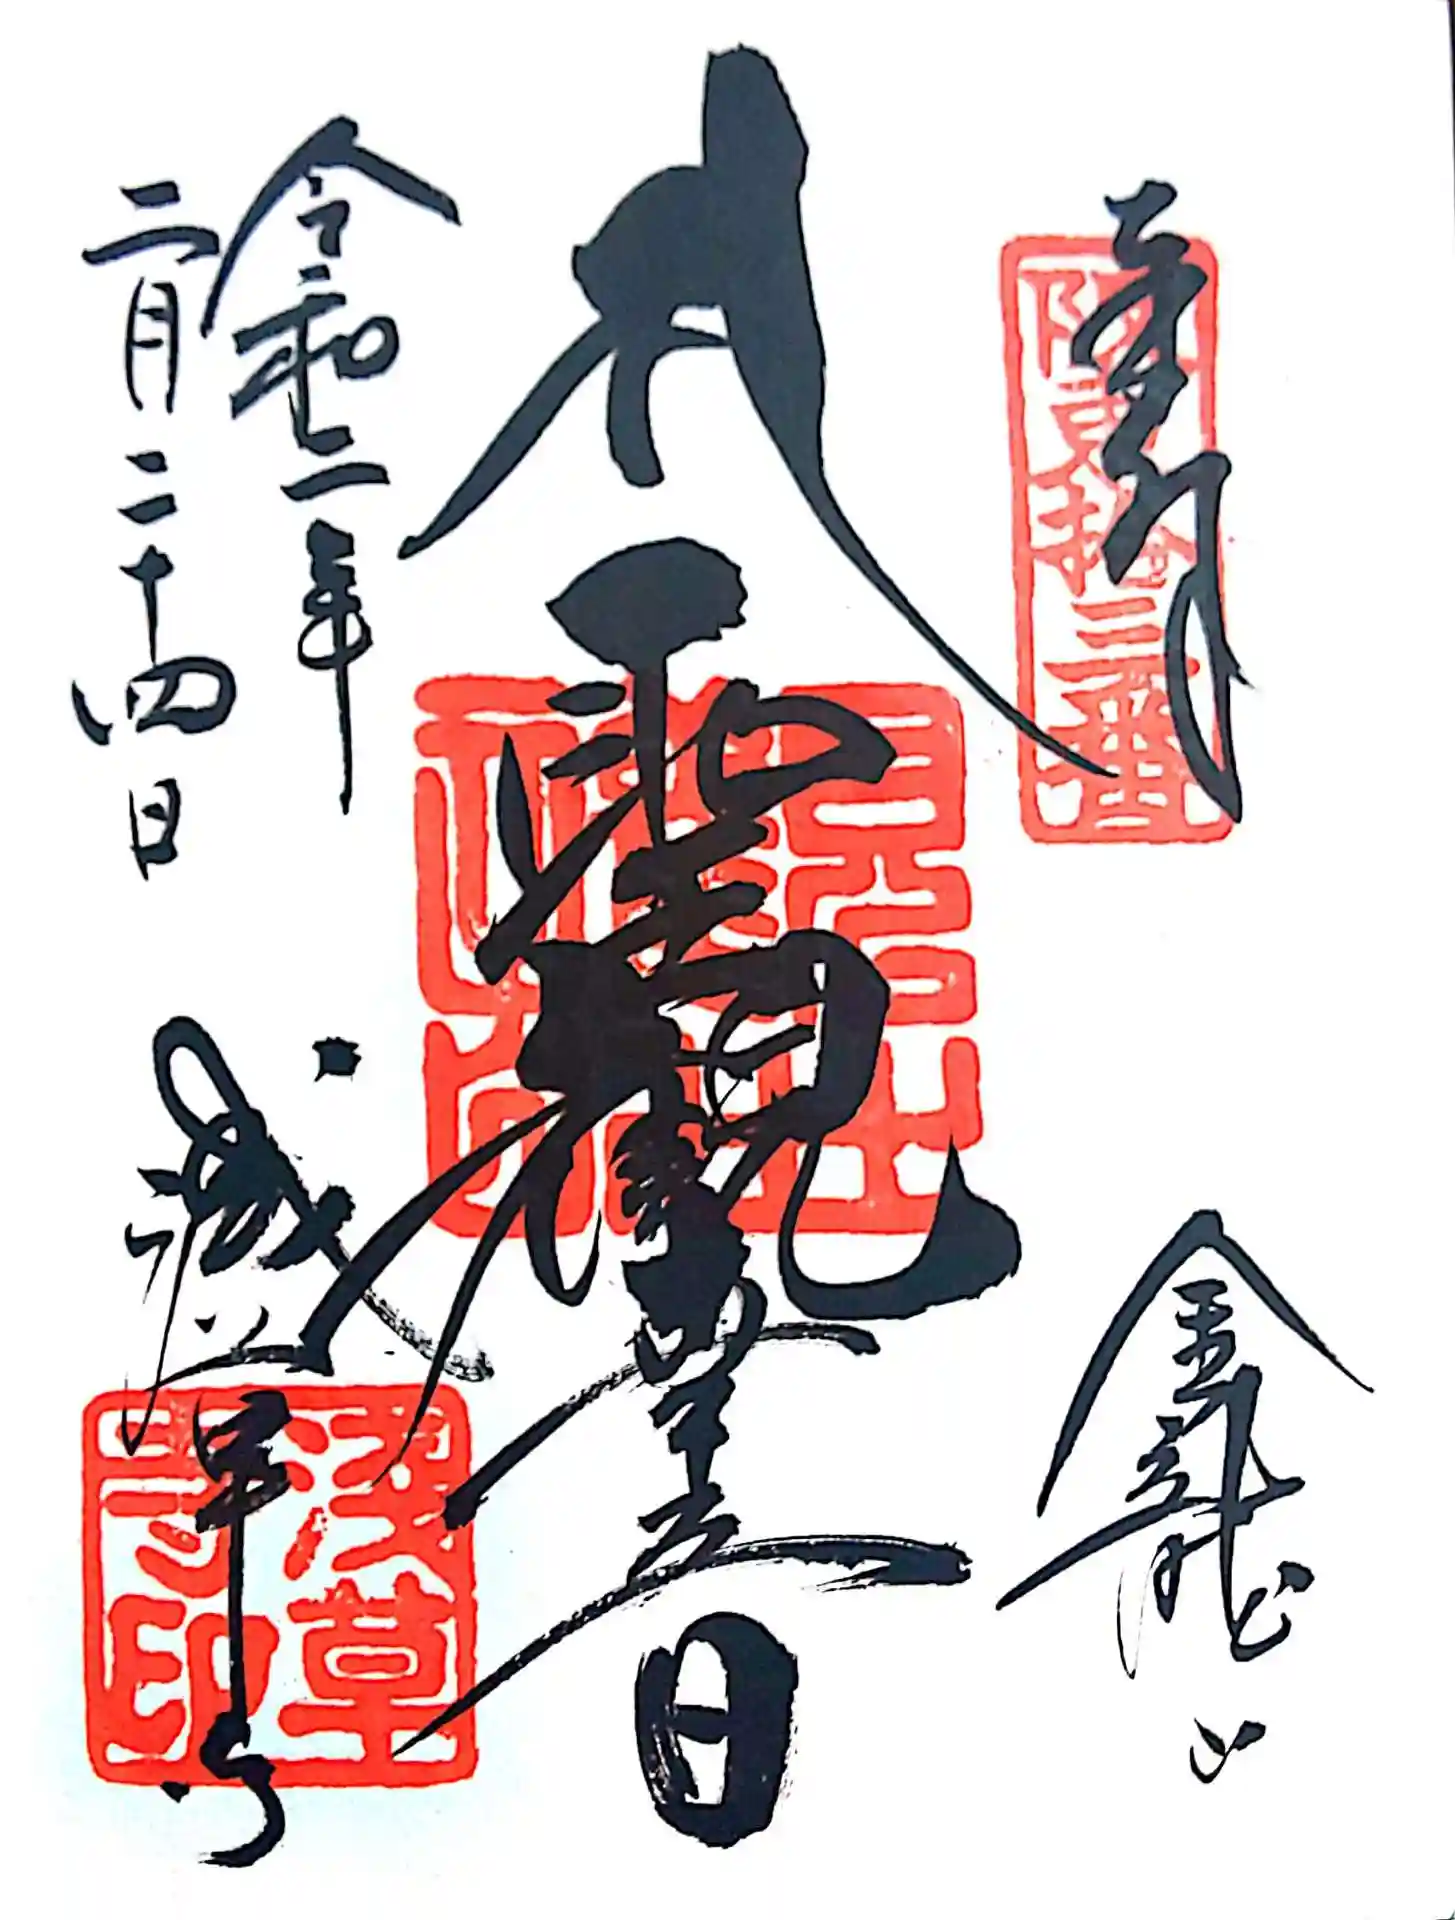 奉拝
坂東拾三番
金龍山
聖観世音
令和二年
二月二十四日
浅草寺
浅草寺印